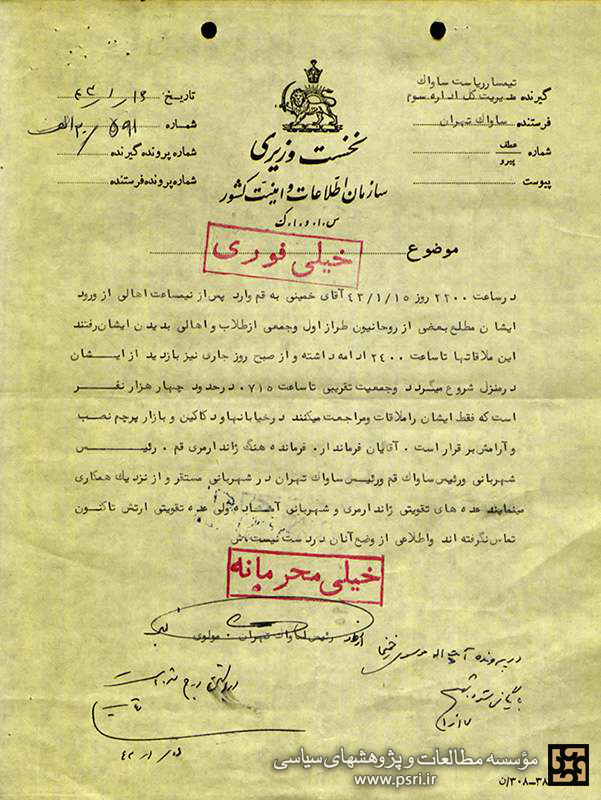 تیمسار ریاست ساواک
گیرنده مدیریت کل اداره سوم
فرستنده ساواک تهران
شماره عطف
پیرو
پیوست
تاریخ ۴۳/۱/۱۶
شماره ۵۹۱/۲۰الف
شماره پرونده گیرنده
شماره پرونده فرستنده
نخست وزیری
سازمان اطلاعات و امنیت کشور
س.ا.و.ا.ک
موضوع
خیلی فوری
در ساعت ۲۲۰۰ روز ۴۳/۱/۱۵ آقای خمینی به قم وارد پس از نیمساعت اهالی از ورود
ایشان مطلع بعضی از روحانیون طراز اول وجمعی از طلاب و اهالی بدیدن ایشان رفتند
این ملاقاتها تا ساعت ۲۴۰۰ ادامه داشته و از صبح روز جاری نیز بازدید از ایشان
در منزل شروع میگردد وجمعیت تقریبی تا ساعت ۰۷۱۵ در حدود چهار هزار نفر
است که فقط ایشان را ملاقات ومراجعت میکنند در خیابانها و دکاکین و بازار پرچم نصب
و آرامش بر قرار است . آقایان فرماندار، فرمانده هنگ ژاندارمری قم . رئیس
شهربانی ورئیس ساواک قم ورئیس ساواک تهران در شهربانی مستقر و از نزدیک همکاری
مینمایند عده های تقویتی ژاندارمری و شهربانی آماده ولی عده تقویتی ارتش تاکنون
تماس نگرفته اند واطلاعی از وضع آنان در دست نیست
خیلی محرمانه
رئیس ساواک تهران . مولوی
در پرونده آیت اله موسوی خمینی
بایگانی شود
۴۳/۱/
مؤسسه مطالعات و پژوهشهای سیاسی
www.psri.ir
۳۸-۳۰۸/ن